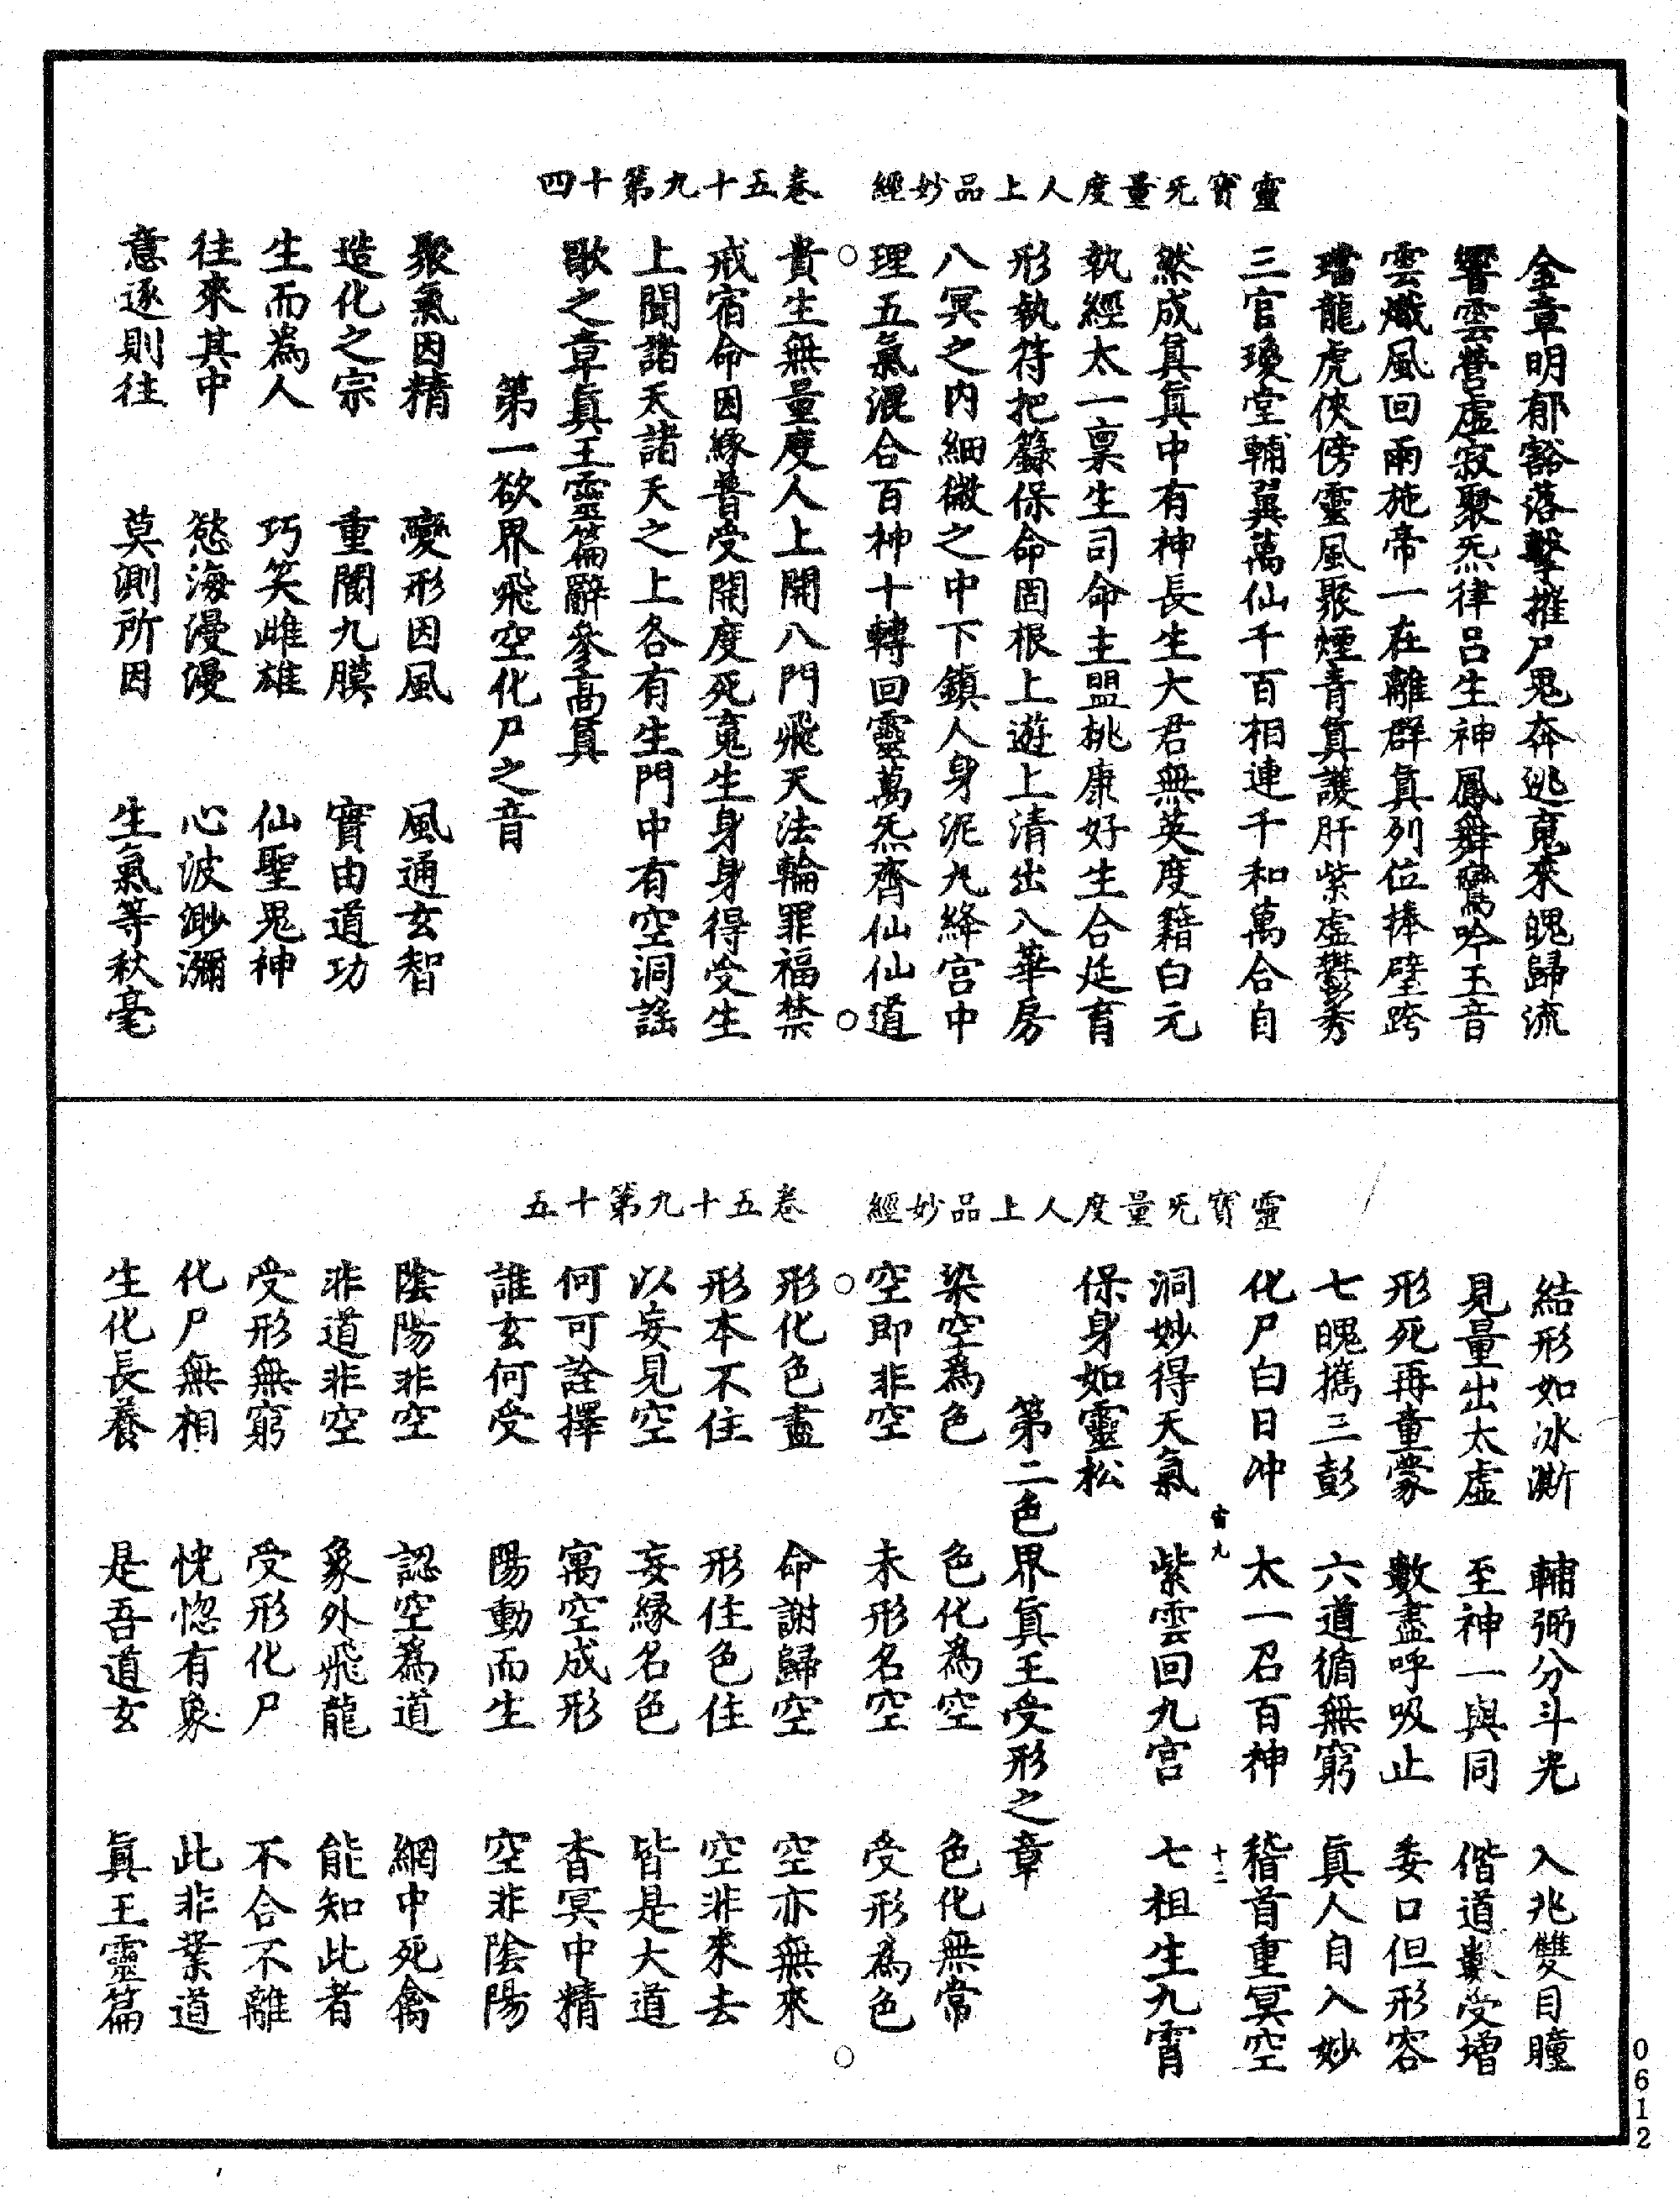 靈寶旡量度人上品妙經　卷五十九第十四
金章明郁豁落擊摧尸鬼奔逃䰟來魄歸流
響雲營虛寂聚炁律呂生神鳳舞鸞吟玉音
雲熾風回雨施帝一在離群真列位捧壁跨
璫龍虎俠傍靈風聚煙青真護肝紫虛鬱秀
三官瓊堂輔翼萬仙千百相連千和萬合自
然成真真中有神長生大君無英度籍白元
執經太一禀生司命主盟桃康好生合延育
形執符把籙保命固根上遊上清出入華房
八冥之內細微之中下鎮人身泥丸絳宮中
理五氣混合百神十轉回靈萬炁齊仙仙道
貴生無量度人上開八門飛天法輪罪福禁
戒宿命因緣普受開度死䰟生身身得受生
上聞諸天諸天之上各有生門中有空洞謠
歌之章真王靈篇辭參高真
第一欲界飛空化尸之音
聚氣因精　變形因風　風通玄智
造化之宗　重閽九膜　實由道功
生而為人　巧笑雌雄　仙聖鬼神
往來其中　慾海漫漫　心波渺瀰
意逐則往　莫測所因　生氣等秋毫
靈寶旡量度人上品妙經　卷五十九第十五
結形如冰澌　輔弼分斗光　入兆雙目瞳
見量出太虛　至神一與同　偕道數受增
形死再童蒙　數盡呼吸止　委口但形容
七魄攜三彭　六道循無窮　真人自入妙
化尸白日冲　太一召百神　稽首重冥空
雷九　十二
洞妙得天氣　紫雲回九宮　七祖生九霄
保身如靈松
第二色界真王受形之章
染空為色　色化為空　色化無常
空即非空　未形名空　受形為色
形化色盡　命謝歸空　空亦無來
形本不住　形住色住　空非來去
以妄見空　妄緣名色　皆是大道
何可詮擇　寓空成形　杳冥中精
誰玄何受　陽動而生　空非陰陽
陰陽非空　認空為道　網中死禽
非道非空　象外飛龍　能知此者
受形無窮　受形化尸　不合不離
化尸無相　恍惚有象　此非業道
生化長養　是吾道玄　真王靈篇
0612